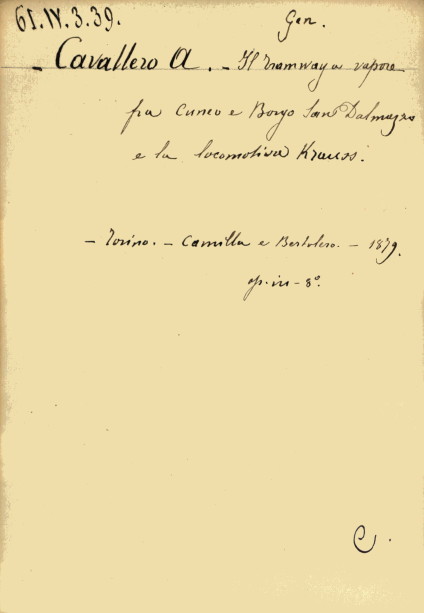 61.IV.3.39.
Gen.
- Cavallero A. - Il Tramway a vapore
fra Cuneo e Borgo San Dalmazzo
e la locomotiva Krauss.
- Torino. - Camilla e Bertolero. - 1879.
op. in - 8º.
C.